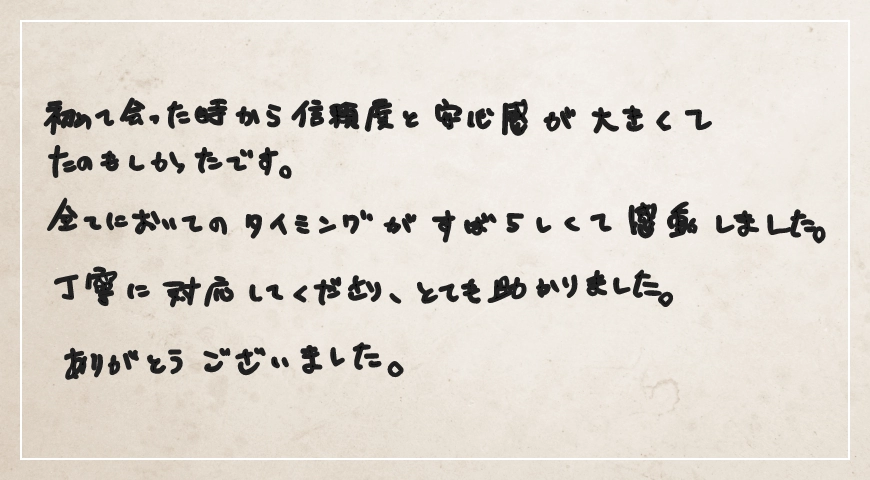 初めて会った時から信頼度と安心感が大きくて
たのもしかったです。
全てにおいてのタイミングがすばらしくて感動しました。
丁寧に対応してくださり、とても助かりました。
ありがとうございました。